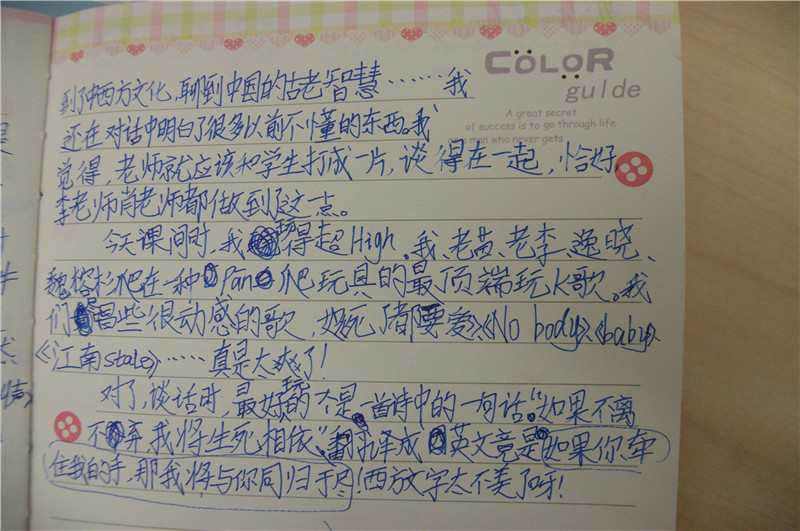 COLOR
guide
A great secret
of success is to go through life
as a man who never gets
到了中西方文化,聊到中国的古老智慧……我
还在对话中明白了很多以前不懂的东西。我
觉得,老师就应该和学生打成一片,谈得在一起,恰好,
李老师肖老师都做到了这一点。
今天课间时,我玩得超High。我、老黄、老李、逸晓、
魏榕杉爬在一种Pan爬玩具的最顶端玩K歌。我
们唱些很动感的歌,如《死了都要爱》《No body》《baby》
《江南stale》……真是太爽了!
对了,谈话时,最好玩的个是一首诗中的一句话:“如果不离
不弃,我将生死相依。”翻译成英文竟是如果你牵
住我的手,那我将与你同归于尽!西方文字太不美了呀!